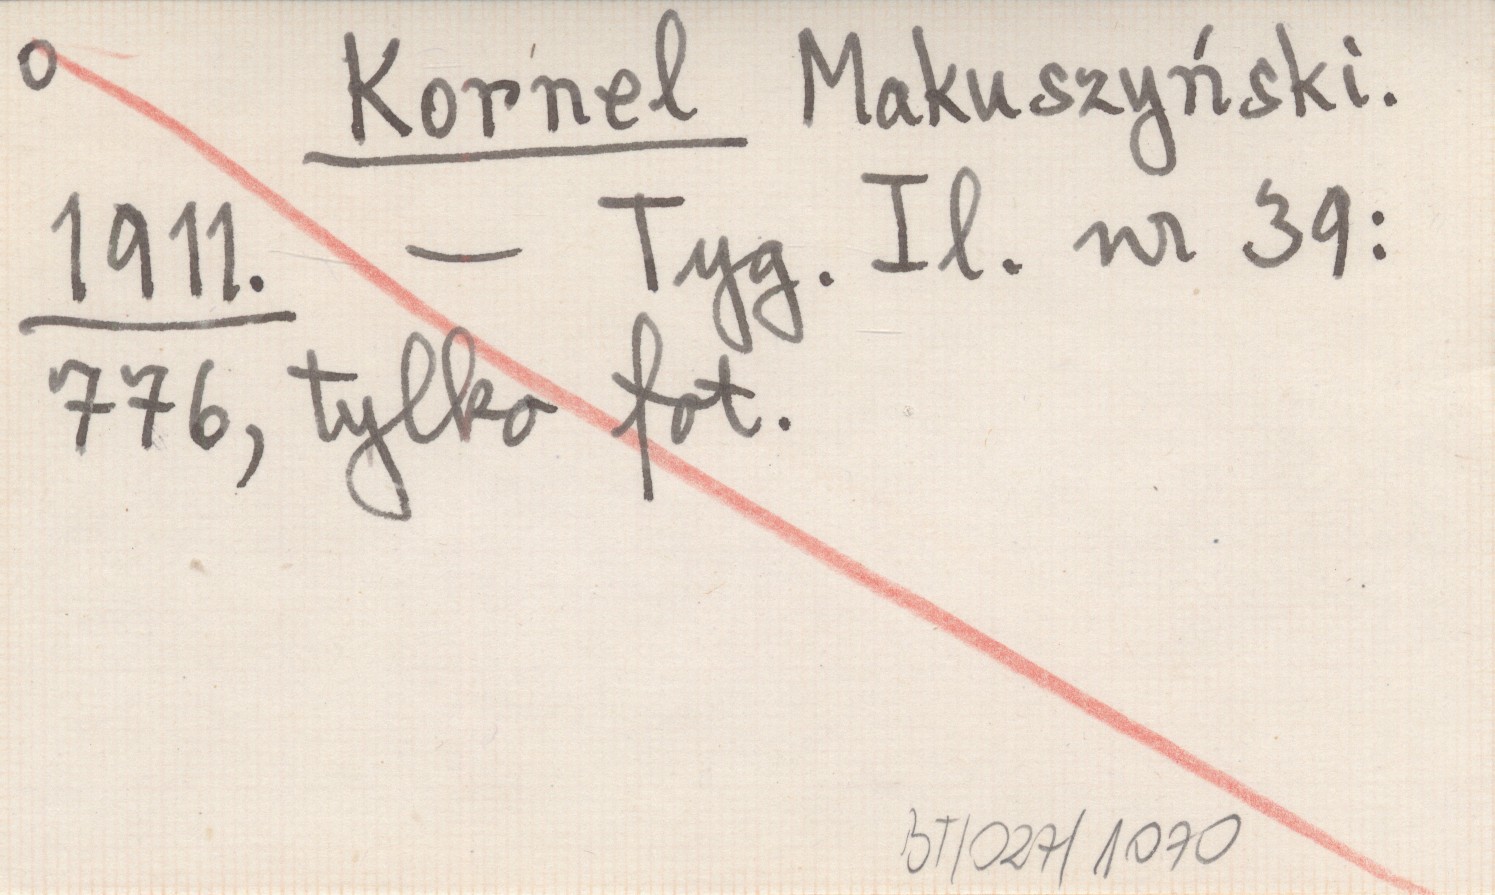 o Kornel Makuszyński.
1911. — Tyg. Il. nr 39:
776, tylko fot.
BT/027/1070